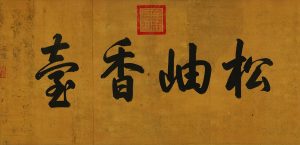 松岫香臺